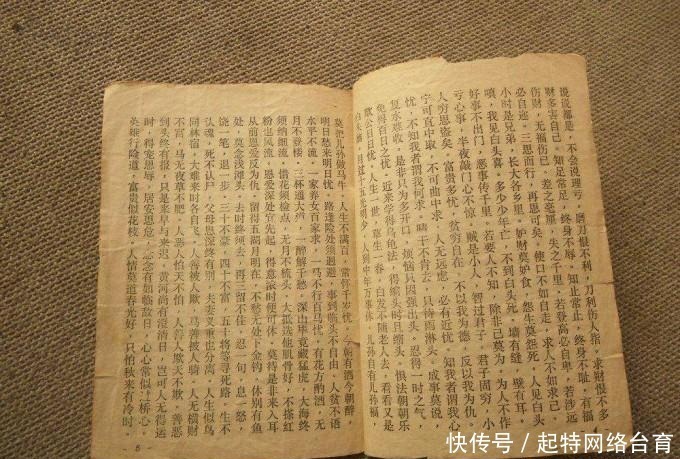 说说都是，不会说理亏。磨刀恨不利，刀利伤人指。求财恨不多
财多害自己。知足常足，终身不辱。知止常止，终身不耻。有福
伤财，无福伤己。差之毫厘，失之千里。若登高必自卑，若涉远
必自迩。三思而行，再思可矣。使口不如自走，求人不如求己
小时是兄弟，长大各乡里。妒财莫妒食，怨生莫怨死。人见白头
嗔，我见白头喜。多少少年亡，不到白头死。墙有缝，壁有耳。
好事不出门，恶事传千里。若要人不知，除非己莫为。为人不作
亏心事，半夜敲门心不惊。贼是小人，智过君子。君子固穷，小
人穷思盗矣。富贵多忧，贫穷自在。不以我为德，反以我为仇。
宁可直中取，不可曲中求。人无远虑，必有近忧。知我者谓我心
忧，不知我者谓我何求。晴干不肯去，只待雨淋头。成事莫说，
复水难收。是非只为多开口，烦恼只因强出头。忍得一时之气，
免得百日之忧。近来学得乌龟法，得缩头时且缩头。惧法朝朝乐
欺公日日忧。人生一世，草生一春。白发不随老人去，看看又是
白头翁。月过十五光明少，人到中年万事休。儿孙自有儿孙福，
莫把儿孙做马牛。人生不满百，常怀千岁忧。今朝有酒今朝醉，
明日愁来明日忧。路逢险处须回避，事到临头不自由。人贫不语
水平不流。一家养女百家求，一马不行百马忧。有花方酌酒，无
月不登楼。三杯通大道，一醉解千愁。深山毕竟藏猛虎，大海终
须纳细流。惜花须检点，无月不梳头。大抵选他肌骨好，不搽红
粉也风流。恩爱深处宜先起，得意浓时便可休。莫待是非来入耳
从前恩爱反为仇。留得五湖明月在，不愁无处下金钩。休别有鱼
处，莫念浅滩头。去时终须去，再三留不住。忍一句，息一怒，
饶一笔，退一步。三十不豪，四十不富，五十将等寻死路。生不
认魂，死不认尸。父母恩深终有别，夫妻义重也分离。人生似鸟
同林宿，大难来时各自飞。人善被人欺，马善被人骑。人无横财
不富，马无夜草不肥。人恶人怕天不怕，人善人欺天不欺。善恶
到头终有报，只是来早与来迟。黄河尚有澄清日，岂可人无得运
时。得宠思辱，居安思危。念念有如临敌日，心心常似过桥心。
英雄行险道，富贵似花枝。人情莫道春光好，只怕秋来有冷时。
- 5 -
快传号／起特网络台育